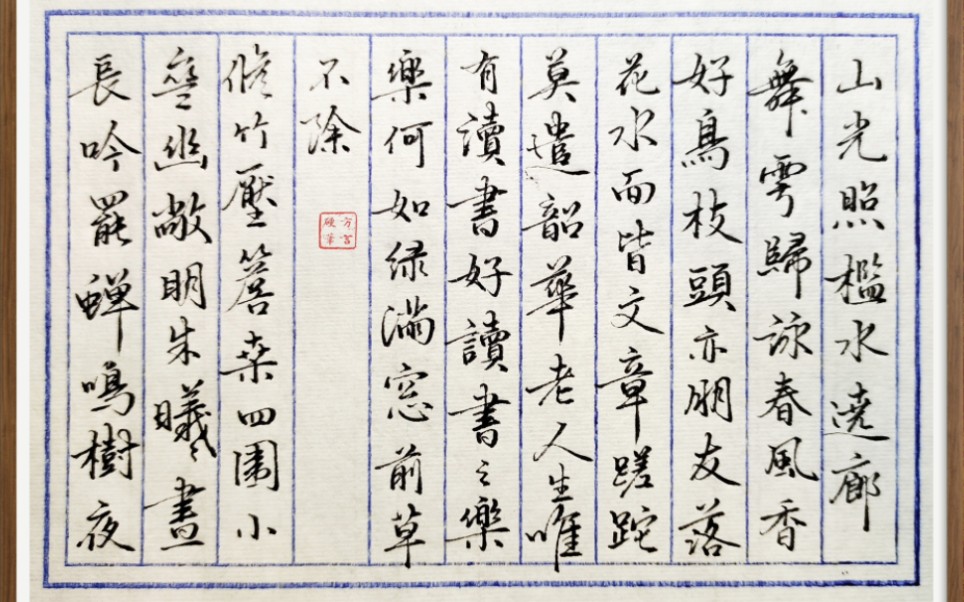 山光照檻水遶廊
舞雩歸詠春風香
好鳥枝頭亦朋友落
花水面皆文章蹉跎
莫遣韶華老人生唯
有讀書好讀書之樂
樂何如绿滿窓前草
不除
修竹壓簷桑四圍小
齋幽敞明朱曦晝
長吟罷蟬鳴樹夜